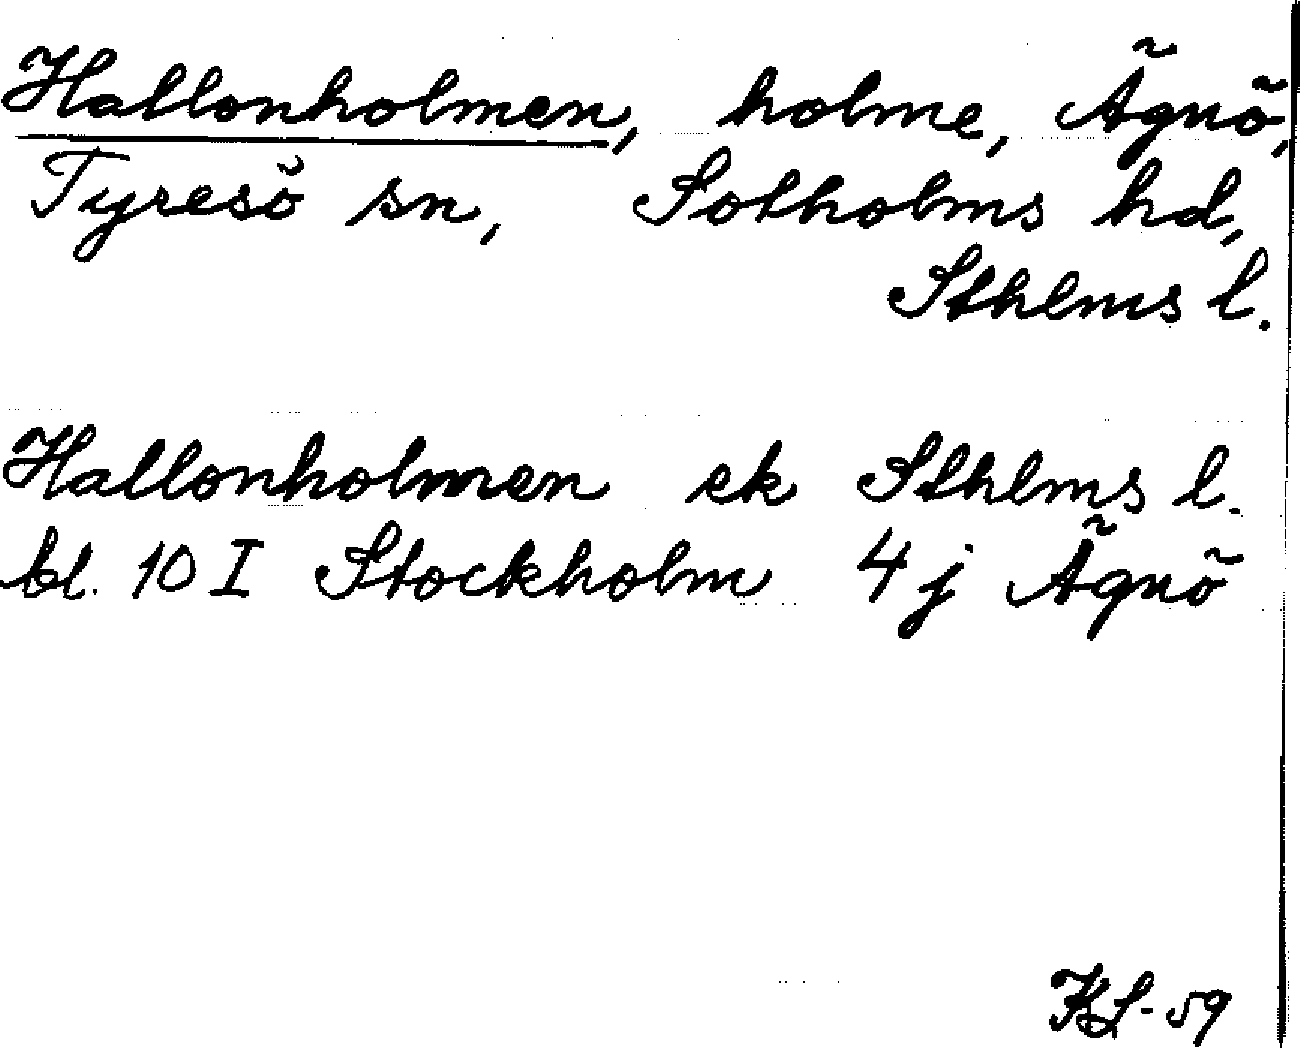 Hallonholmen, holme, Ägnö,
Tyresö sn, Sotholms hd,
Sthlms l.
Hallonholmen ek Sthlms l.
bl. 10 I Stockholm 4 j Ägnö
KL-59